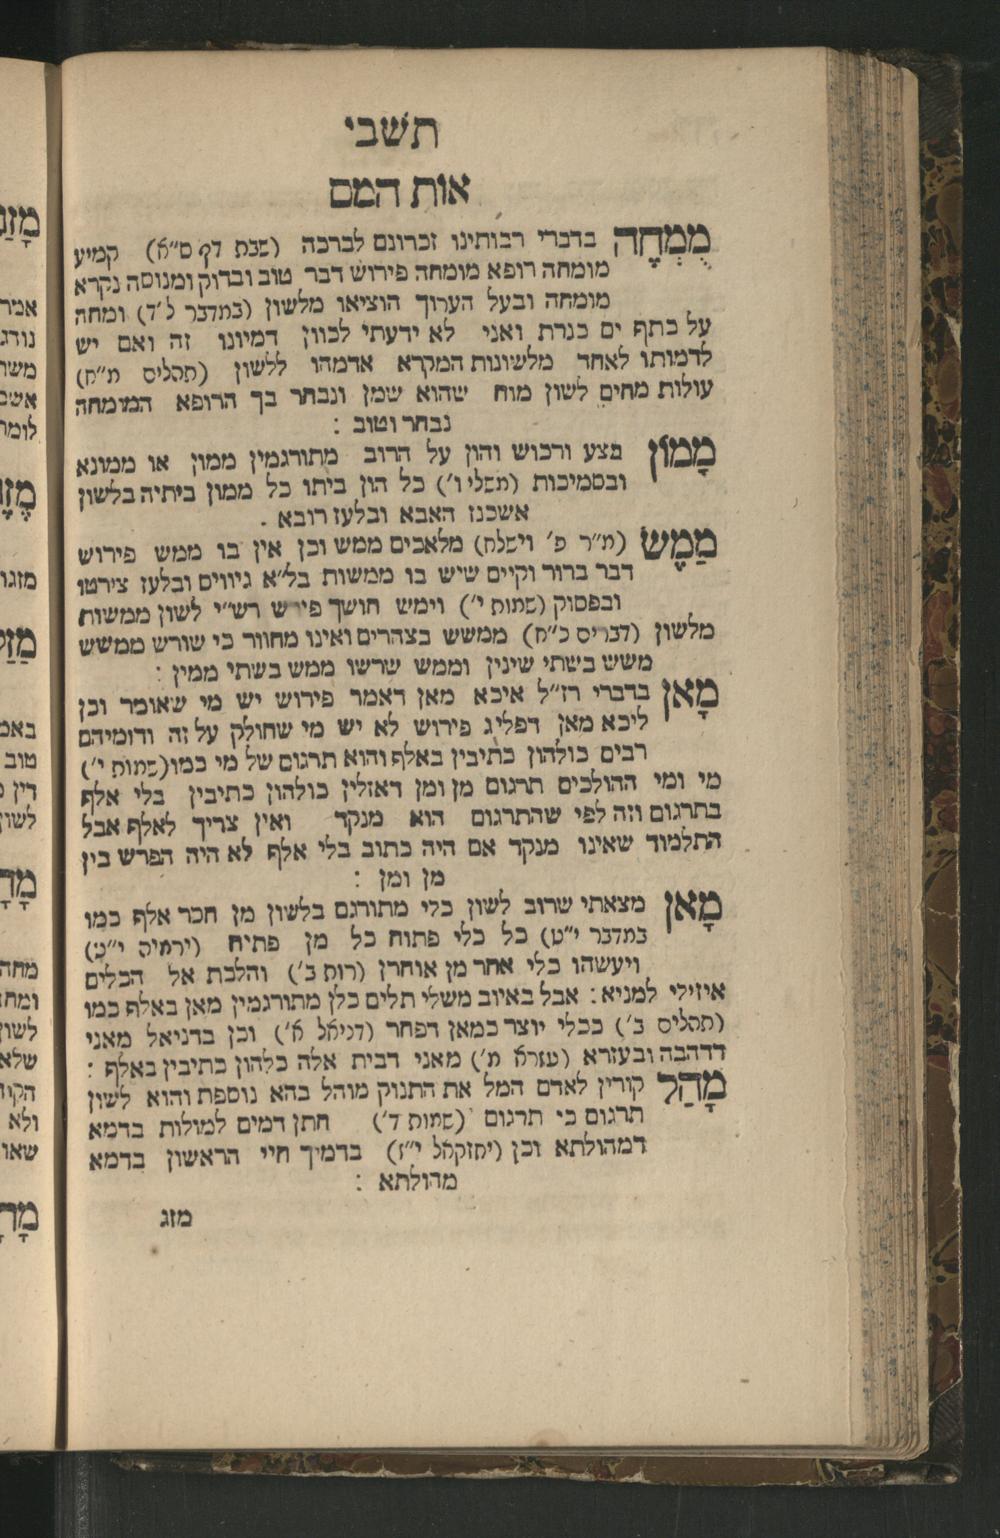 תשבי
אות המם
מֻמְחֶה בדברי רבותינו זכרונם לברכה (שבת דף ס״א) קמיע
מומחה רופא מומחה פירוש דבר טוב ובדוק ומנוסה נקרא
מומחה ובעל הערוך הוציאו מלשון (במדבר ל׳ד) ומחה
על כתף ים כנרת ואני לא ידעתי לכוון דמיונו זה ואם יש
לדמותו לאחד מלשונות המקרא אדמהו ללשון (תהלים מ״ח)
עולות מחים לשון מוח שהוא שמן ונבחר בך הרופא המומחה
נבחר וטוב :
מָמוֹן בצע ורכוש והון על הרוב מתורגמין ממון או ממונא
ובסמיכות (משלי ו׳) כל הון ביתו כל ממון ביתיה בלשון
אשכנז האבא ובלעז רובא .
מַמָּשׁ (מ״ר פ׳ וישלח) מלאכים ממש וכן אין בו ממש פירוש
דבר ברור וקיים שיש בו ממשות בל״א גיוויס ובלעז צירטו
ובפסוק (שמות י׳) וימש חושך פירש רש״י לשון ממשות
מלשון (דברים כ״ח) ממשש בצהרים ואינו מחוור כי שורש ממשש
משש בשתי שינין וממש שרשו ממש בשתי ממין :
מָאן בדברי רז״ל איכא מאן דאמר פירוש יש מי שאומר וכן
ליכא מאן דפליג פירוש לא יש מי שחולק על זה ודומיהם
רבים כולהון כתיבין באלף והוא תרגום של מי כמו (שמות י׳)
מי ומי ההולכים תרגום מן ומן דאזלין כולהון כתיבין בלי אלף
בתרגום וזה לפי שהתרגום הוא מנקד ואין צריך לאלף אבל
התלמוד שאינו מנקד אם היה כתוב בלי אלף לא היה הפרש בין
מן ומן :
מָאן מצאתי שרוב לשון כלי מתורגם בלשון מן חסר אלף כמו
במדבר י״ט) כל כלי פתוח כל מן פתיח (ירמיה י״ט)
ויעשהו כלי אחר מן אוחרן (רות ב׳) והלכת אל הכלים
איזילי למניא : אבל באיוב משלי תלים כלן מתורגמין מאן באלף כמו
(תהלים ב׳) ככלי יוצר כמאן דפחר (דניאל א׳) וכן בדניאל מאני
דדהבה ובעזרא (עזרא מ׳) מאני דבית אלה כלהון כתיבין באלף :
מָהַל קורין לאדם המל את התנוק מוהל בהא נוספת והוא לשון
תרגום כי תרגום (שמות ד׳) חתן דמים למולות בדמא
דמהולתא וכן (יחזקאל י״ז) בדמיך חיי הראשון בדמא
מהולתא :
מזג